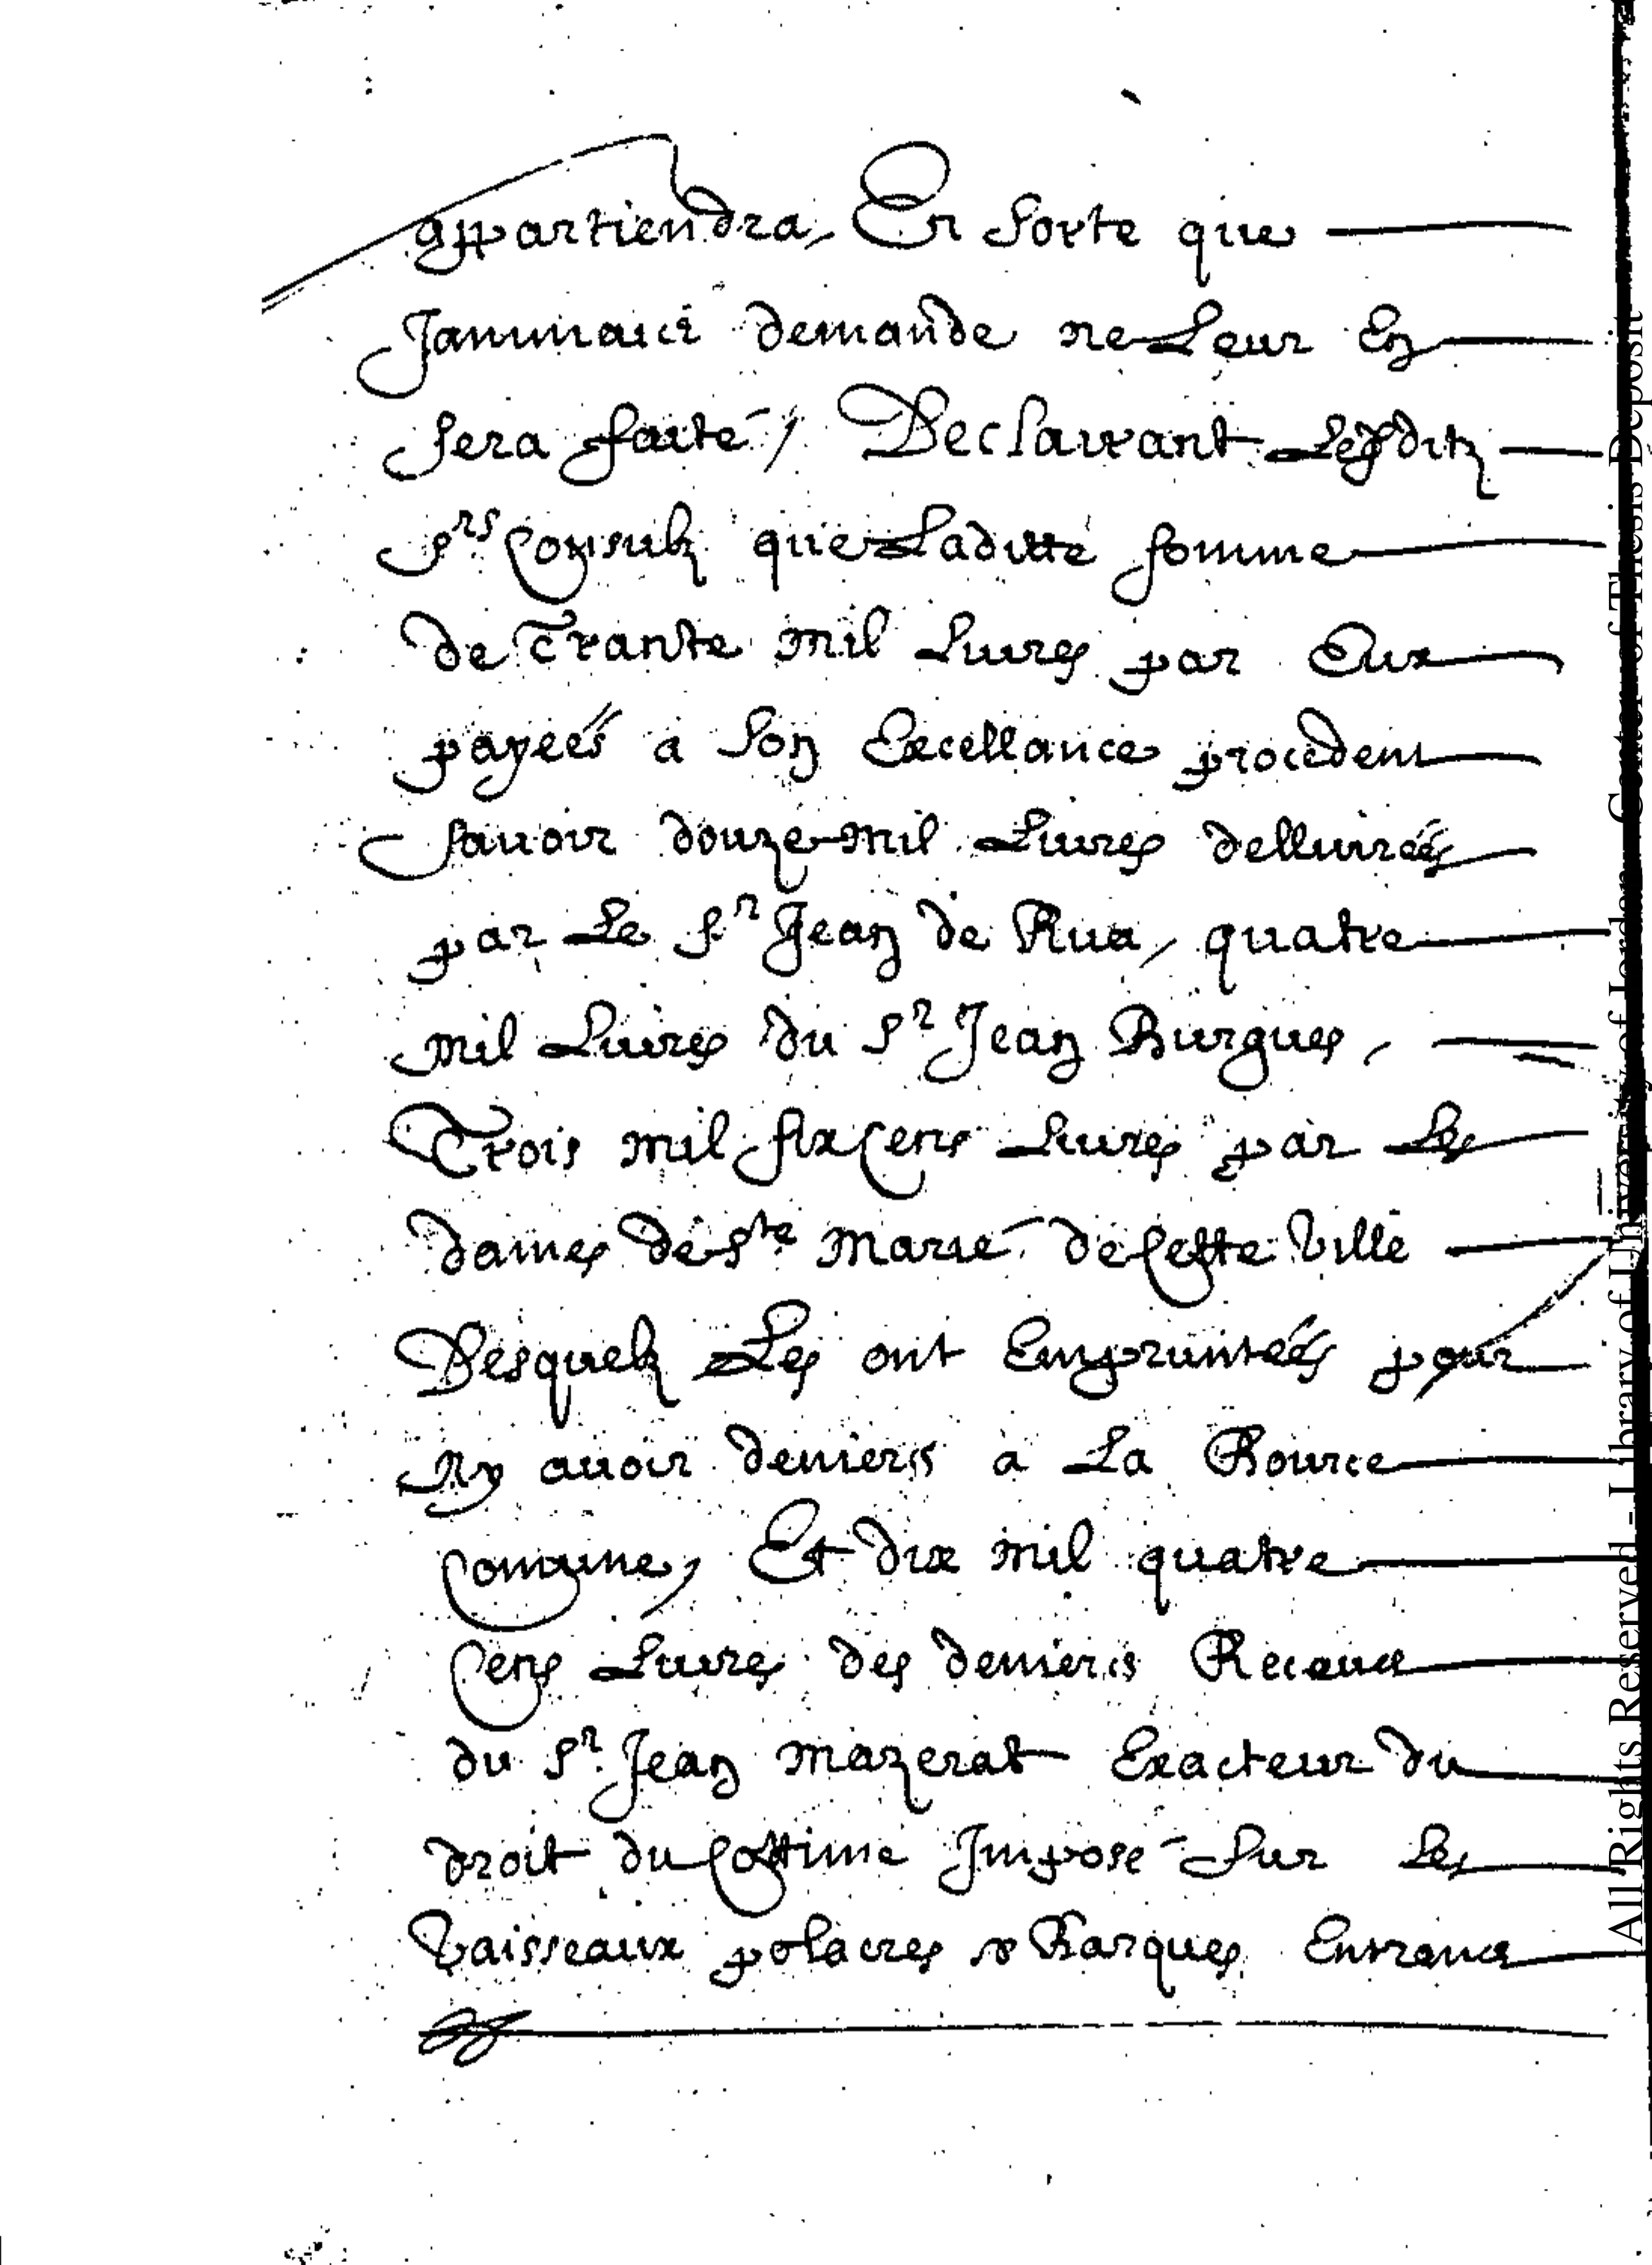 appartiendra, En sorte que
Jammaics demande ne Leur En
sera faite, Desclairant Lesditz
Srs Consulz que Laditte somme
de Trante mil Liures par Eux
payeés a Son Excellance procedent
sauoir douze mil Liures delliureés
par Le Sr Jean de Rua, quatre
mil Liures du Sr Jean Burgues,
Trois mil six Cens Liures par Les
dames de Ste Marie de Cette Ville
Desquelz Les ont Empruntéés pour
Ny auoir deniers a La Bource
Comune, Et dix mil quatre
Cens Liures des deniers Receus
du Sr Jean Mazerat Exacteur du
droit du Cottime Imposé Sur Les
Vaisseaux polacres & Barques Entrans
All Rights Reserved - Library of University of Jordan - Center of Thesis Deposit